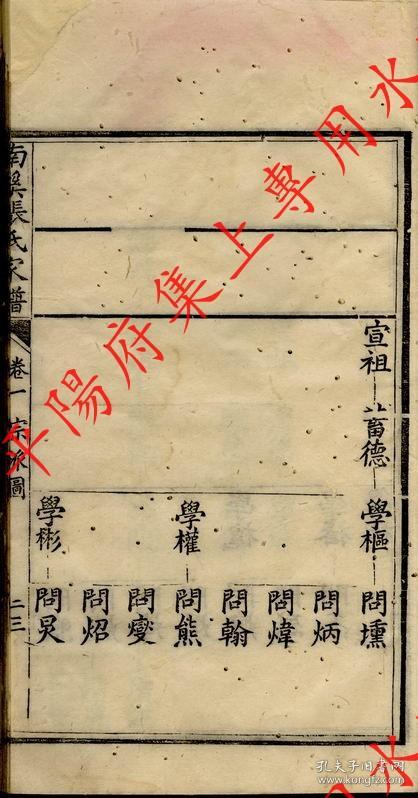 宣祖
畜德
學樞
問壎
問炳
問煒
問翰
學權
問熊
問燮
問炤
學彬
問炅
南溪張氏家譜
卷一
宗派圖
二三
平陽府集上專用水
用水
孔夫子旧书网